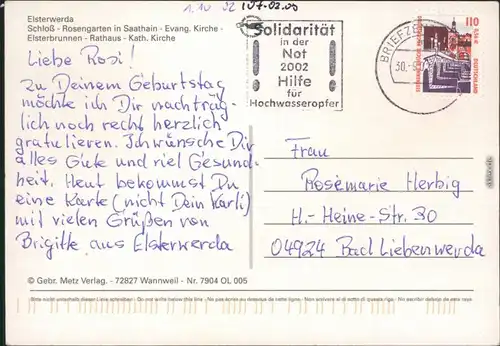 Elsterwerda
Schloß - Rosengarten in Saathain - Evang. Kirche -
Elsterbrunnen - Rathaus - Kath. Kirche
Liebe Rosi!
zu Deinem Geburtstag
möchte ich Dir nachträg-
lich noch recht herzlich
gratulieren. Ich wünsche Dir
alles Gute und viel Gesund-
heit. Heut bekommst Du
eine Karte (nicht Dein Karli)
mit vielen Grüßen von
Brigitte aus Elsterwerda
© Gebr. Metz Verlag. - 72827 Wannweil - Nr. 7904 OL 005
Bitte nicht unterhalb dieser Linie schreiben · Do not write below this line · No pas écrire au dessous de cette ligne · Non scrivere al di sotto di questa riga · No escribir debajo de esta raya
Solidarität
in der
Not
2002
Hilfe
für
Hochwasseropfer
BRIEFZE
30.-9.
110
0,56 €
DEUTSCHLAND
Frau
Rosemarie Herbig
H.-Heine-Str. 30
04924 Bad Liebenwerda